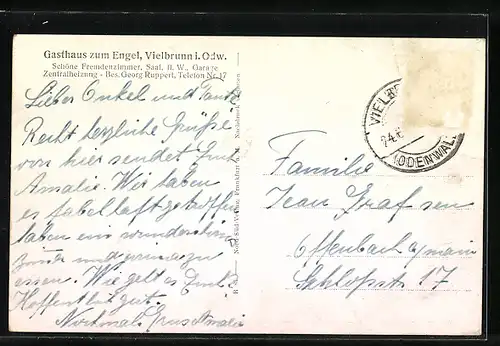 Gasthaus zum Engel, Vielbrunn i. Odw.
Schöne Fremdenzimmer, Saal, fl. W., Garage
Zentralheizung - Bes. Georg Ruppert, Telefon Nr. 17
Lieber Onkel und Tante
Recht herzliche Grüße
von hier sendet Euch
Amalie. Wir haben
es fabelhaft getroffen
haben ein wunderschön
und prima zu
essen. Wie geht es Euch
Hoffentlich gut.
Nochmal Gruss Amalie
Familie
Jean Graf sen
Offenbach a/main
Schloßstr 17
VIELB
24.6
(ODENWAL